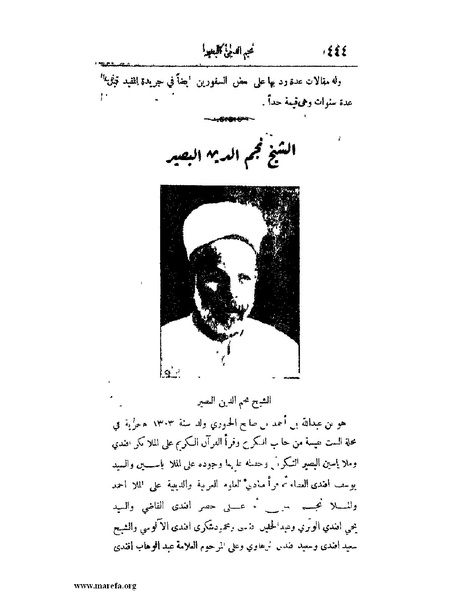 ٤٤٤
نجم الدين
وله مقالات عدة رد بها على بعض السفورين ايضاً في جريدة المفيد
عدة سنوات وهي قيمة جداً .
الشيخ نجم الدين البصير
الشيخ نجم الدين البصير
هو بن عبدالله بن أحمد بن صالح الحوري ولد سنة ١٣٠٣ هجرية في
محلة الست نفيسة من جانب الكرخ وقرأ القرآن الكريم على الملا بكر افندي
وملا ياسين البصير وجوده على الملا ياسين والسيد
يوسف افندي العلوم العربية والدينية على الملا احمد
والملا نجم على خضر افندي القاضي والسيد
يحيى افندي الوتري ومحمود شكري افندي الآلوسي والشيخ
سعيد افندي وسعيد افندي وعلى المرحوم العلامة عبد الوهاب افندي
www.marefa.org